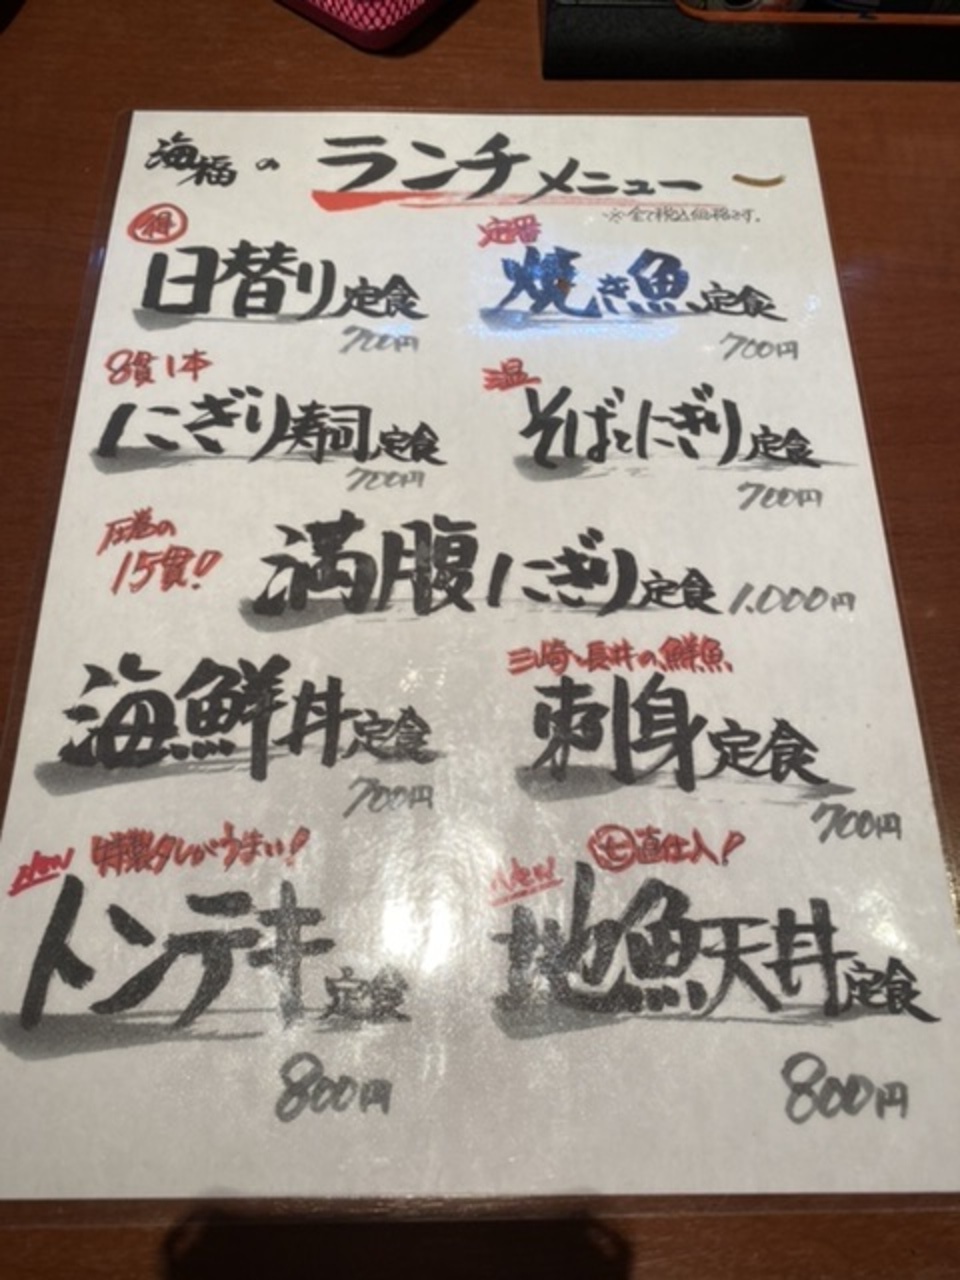 海福のランチメニュー
※全て税込価格です。
得
日替り定食
700円
定番
焼き魚定食
700円
8貫1本
にぎり寿司定食
700円
温
そばとにぎり定食
700円
圧巻の
15貫!!
満腹にぎり定食 1.000円
海鮮丼定食
700円
三崎、長井の鮮魚
刺身定食
700円
New 特製タレがうまい!
トンテキ定食
800円
New 七直仕入!
地魚天丼定食
800円